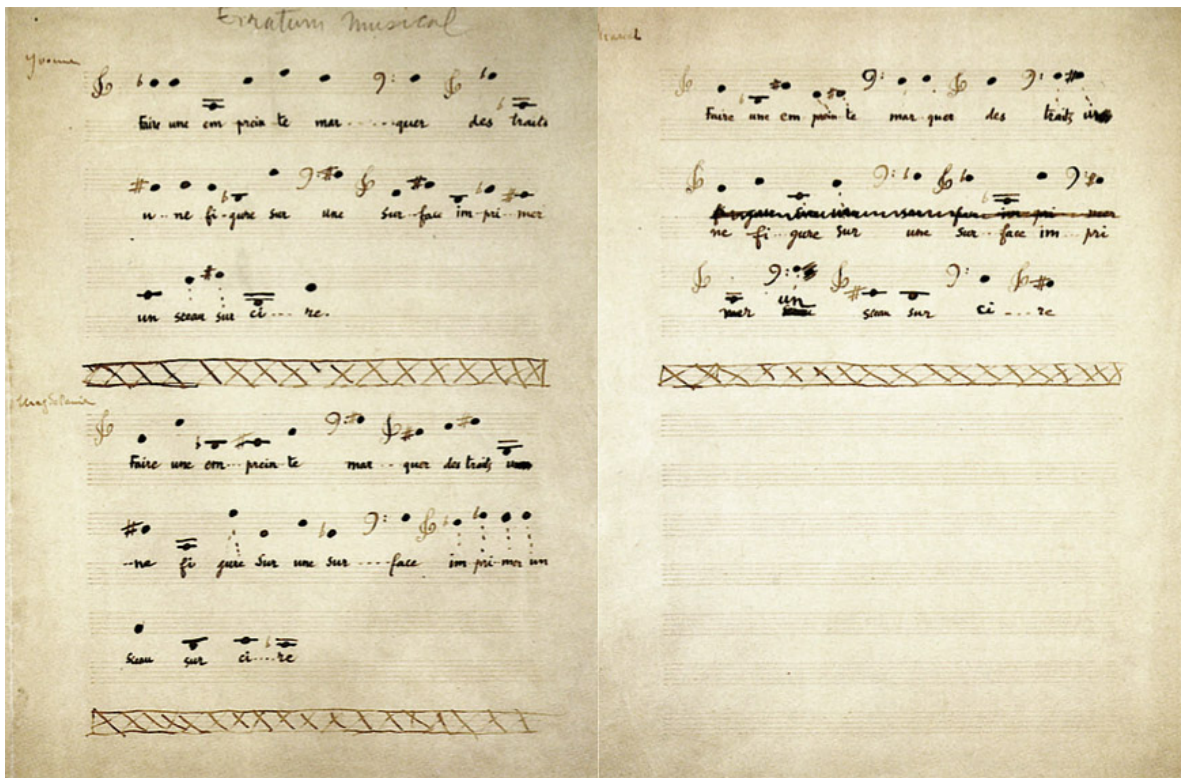 Erratum Musical
Yvonne
Faire une em prein te mar - - - - quer des traits
u - - ne fi - gure sur une sur - face im - pri - mer
un sceau sur ci - - - - re.
Magdeleine
Faire une em - - - prein - te mar - - - quer des traits
- - ne fi gure sur une sur - - - - face im - pri - mer un
sceau sur ci - - - - re
Marcel
Faire une em prein - te mar - quer des traits
ne fi - gure sur une sur - - face im - - pri
mer un sceau sur ci - - - - re